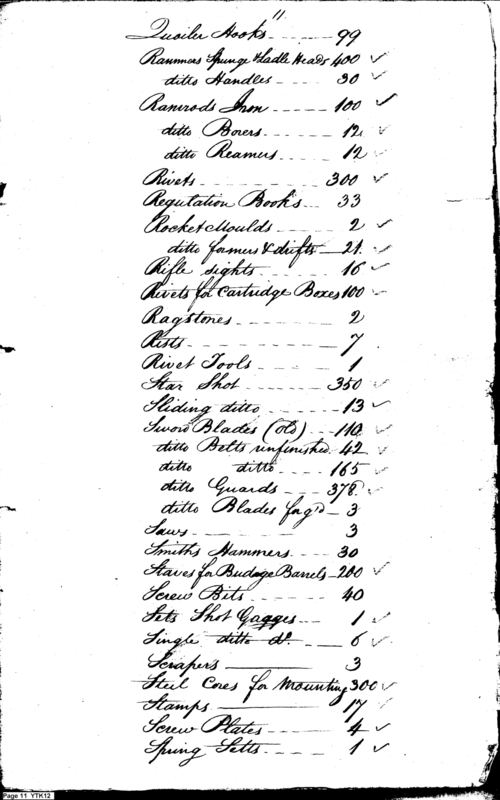 11
Quoiler Hooks 99
Rammers Spunge & Ladle Heads 400 ✓
ditto Handles 30 ✓
Ramrods Iron 100 ✓
ditto Borers 12 ✓
ditto Reamers 12 ✓
Rivets 300 ✓
Regulation Books 33
Rocket Moulds 2 ✓
ditto formers & drifts 21 ✓
Rifle sights 16 ✓
Rivets for Cartridge Boxes 100 ✓
Ragstones 2
Rists 7
Rivet Tools 1
Star Shot 350 ✓
Sliding ditto 13 ✓
Sword Blades (old) 110 ✓
ditto Belts unfinished 42 ✓
ditto ditto 165 ✓
ditto Guards 378 ✓
ditto Blades forg'd 3
Saws 3
Smiths Hammers 30
Staves for Budage Barrels 200 ✓
Screw Bits 40
Sets Shot Gagges 1 ✓
Single ditto do. 6 ✓
Scrapers 3
Steel Cores for Mounting 300 ✓
Stamps 17 ✓
Screw Plates 4 ✓
Spring Setts 1 ✓
Page 11 YTK12